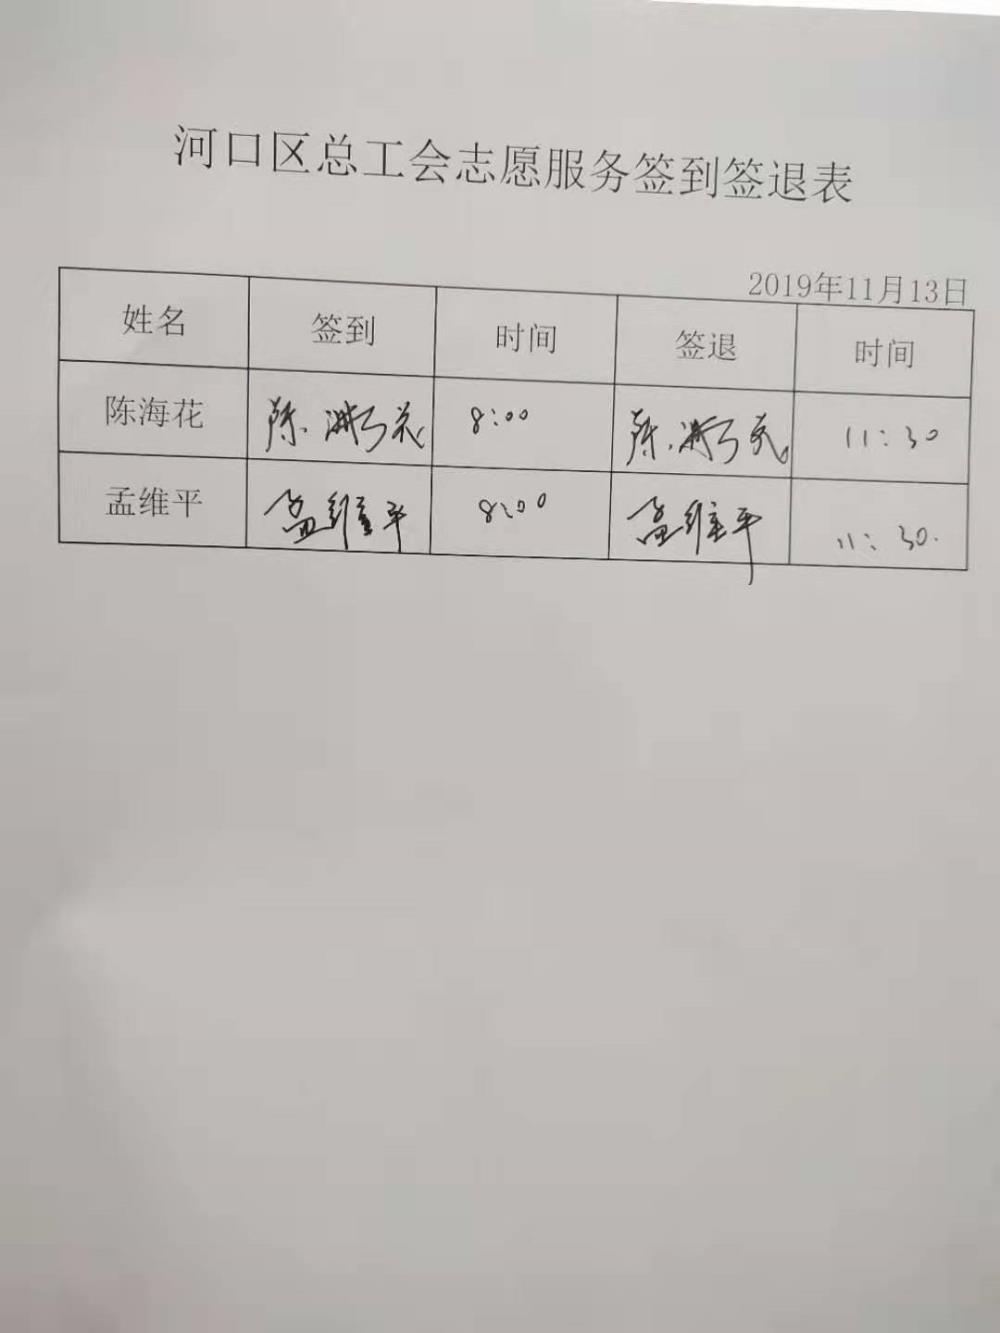 河口区总工会志愿服务签到签退表
2019年11月13日
姓名 签到 时间 签退 时间
陈海花 陈海花 8:00 陈海花 11:30
孟维平 孟维平 8:00 孟维平 11:30.